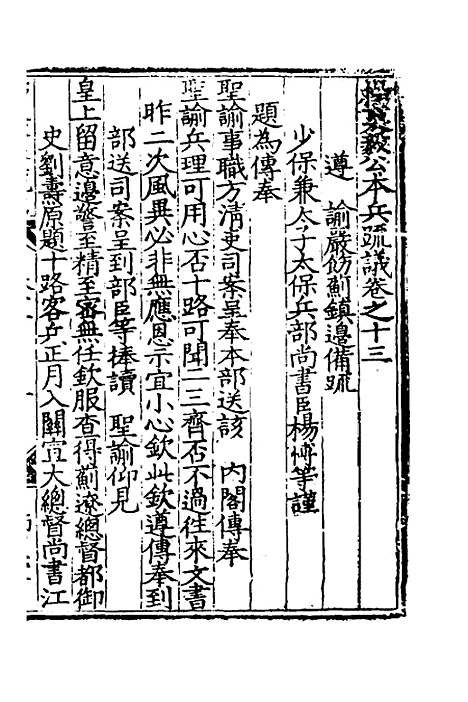 楊襄毅公本兵疏議卷之十三
遵 諭嚴飭薊鎮邊備疏
少保兼太子太保兵部尚書臣楊博等謹
題為傳奉
聖諭事職方清吏司案呈奉本部送該 內閣傳奉
聖諭兵理可用心否十路可聞一二齊否不過往來文書
昨二次風異必非無應恩示宜小心欽此欽遵傳奉到
部送司案呈到部臣等捧讀 聖諭仰見
皇上留意邊警至精至密無任欽服查得薊遼總督都御
史劉燾原題十路客兵正月入關宣大總督尚書江